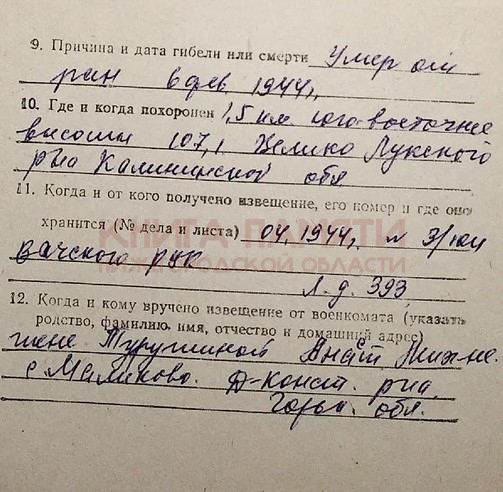 9. Причина и дата гибели или смерти Умер от
ран в фев 1944 г.
10. Где и когда похоронен 1,5 км юго-восточнее
высоты 107,1 Велико Лукского
р-на Калининской обл
11. Когда и от кого получено извещение, его номер и где оно
хранится (№ дела и листа) 04. 1944 г.
КНИГА ПАМЯТИ
вачского рвк
НИЖЕГОРОДСКОЙ ОБЛАСТИ
л. д. 393
12. Когда и кому вручено извещение от военкомата (указать
родство, фамилию, имя, отчество и домашний адрес)
жене
с. Маликово. Д-Конст. р-на,
Горьк. обл.